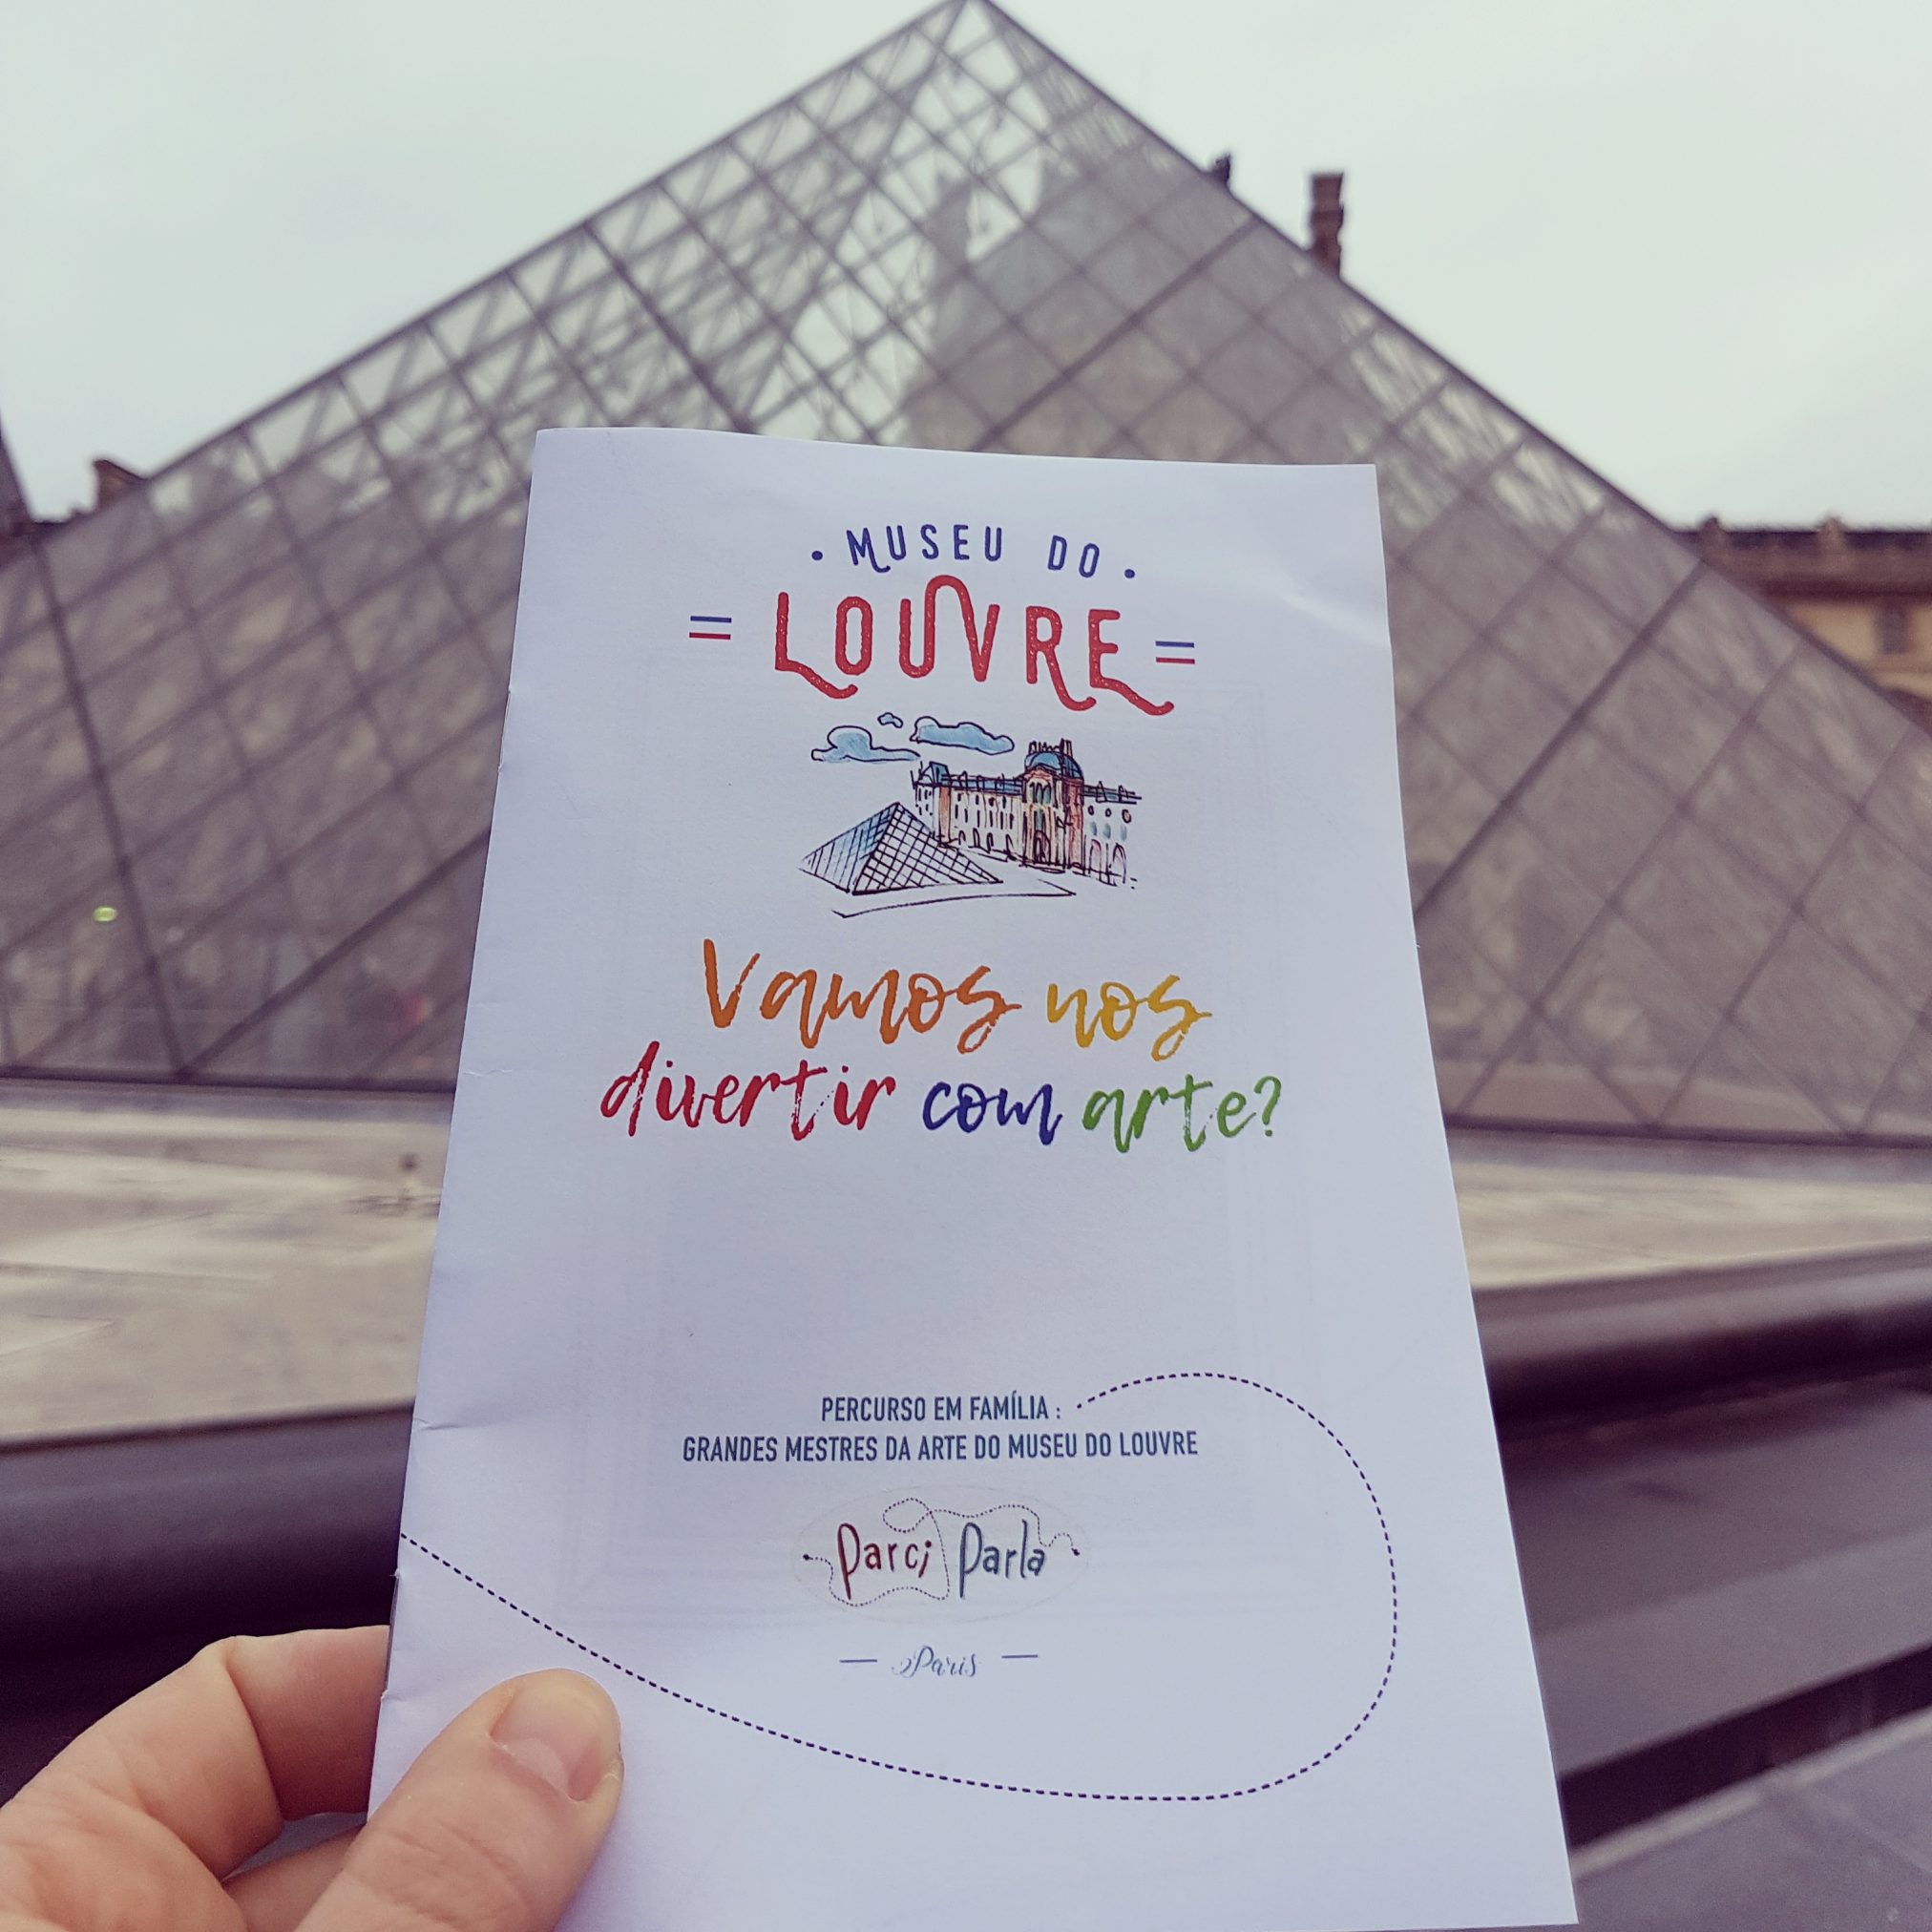 • MUSEU DO •
= LOUVRE =
Vamos nos
divertir com arte?
PERCURSO EM FAMÍLIA :
GRANDES MESTRES DA ARTE DO MUSEU DO LOUVRE
Parci Parla
— Paris —